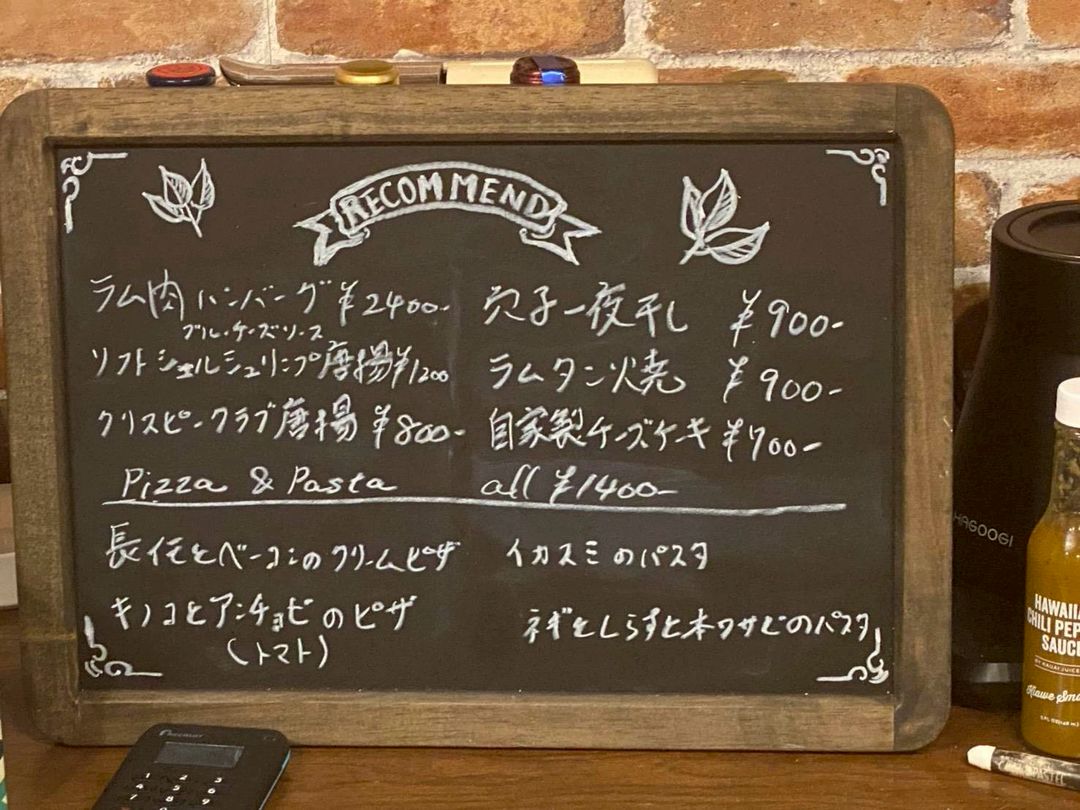 RECOMMEND
ラム肉ハンバーグ ¥2400-
ブルーチーズソース
ソフトシェルシュリンプ唐揚 ¥1200
クリスピークラブ唐揚 ¥800-
穴子一夜干し ¥900-
ラムタン焼 ¥900-
自家製チーズケーキ ¥700-
Pizza & Pasta all ¥1400-
長任とベーコンのクリームピザ
キノコとアンチョビのピザ
(トマト)
イカスミのパスタ
ネギとしらすと本ワサビのパスタ
HAGOOGI
HAWAIIA
CHILI PEP
SAUC
BY KAUAI JUICE
Kiawe Smo
1 2 3
4 5 6
7 8 9